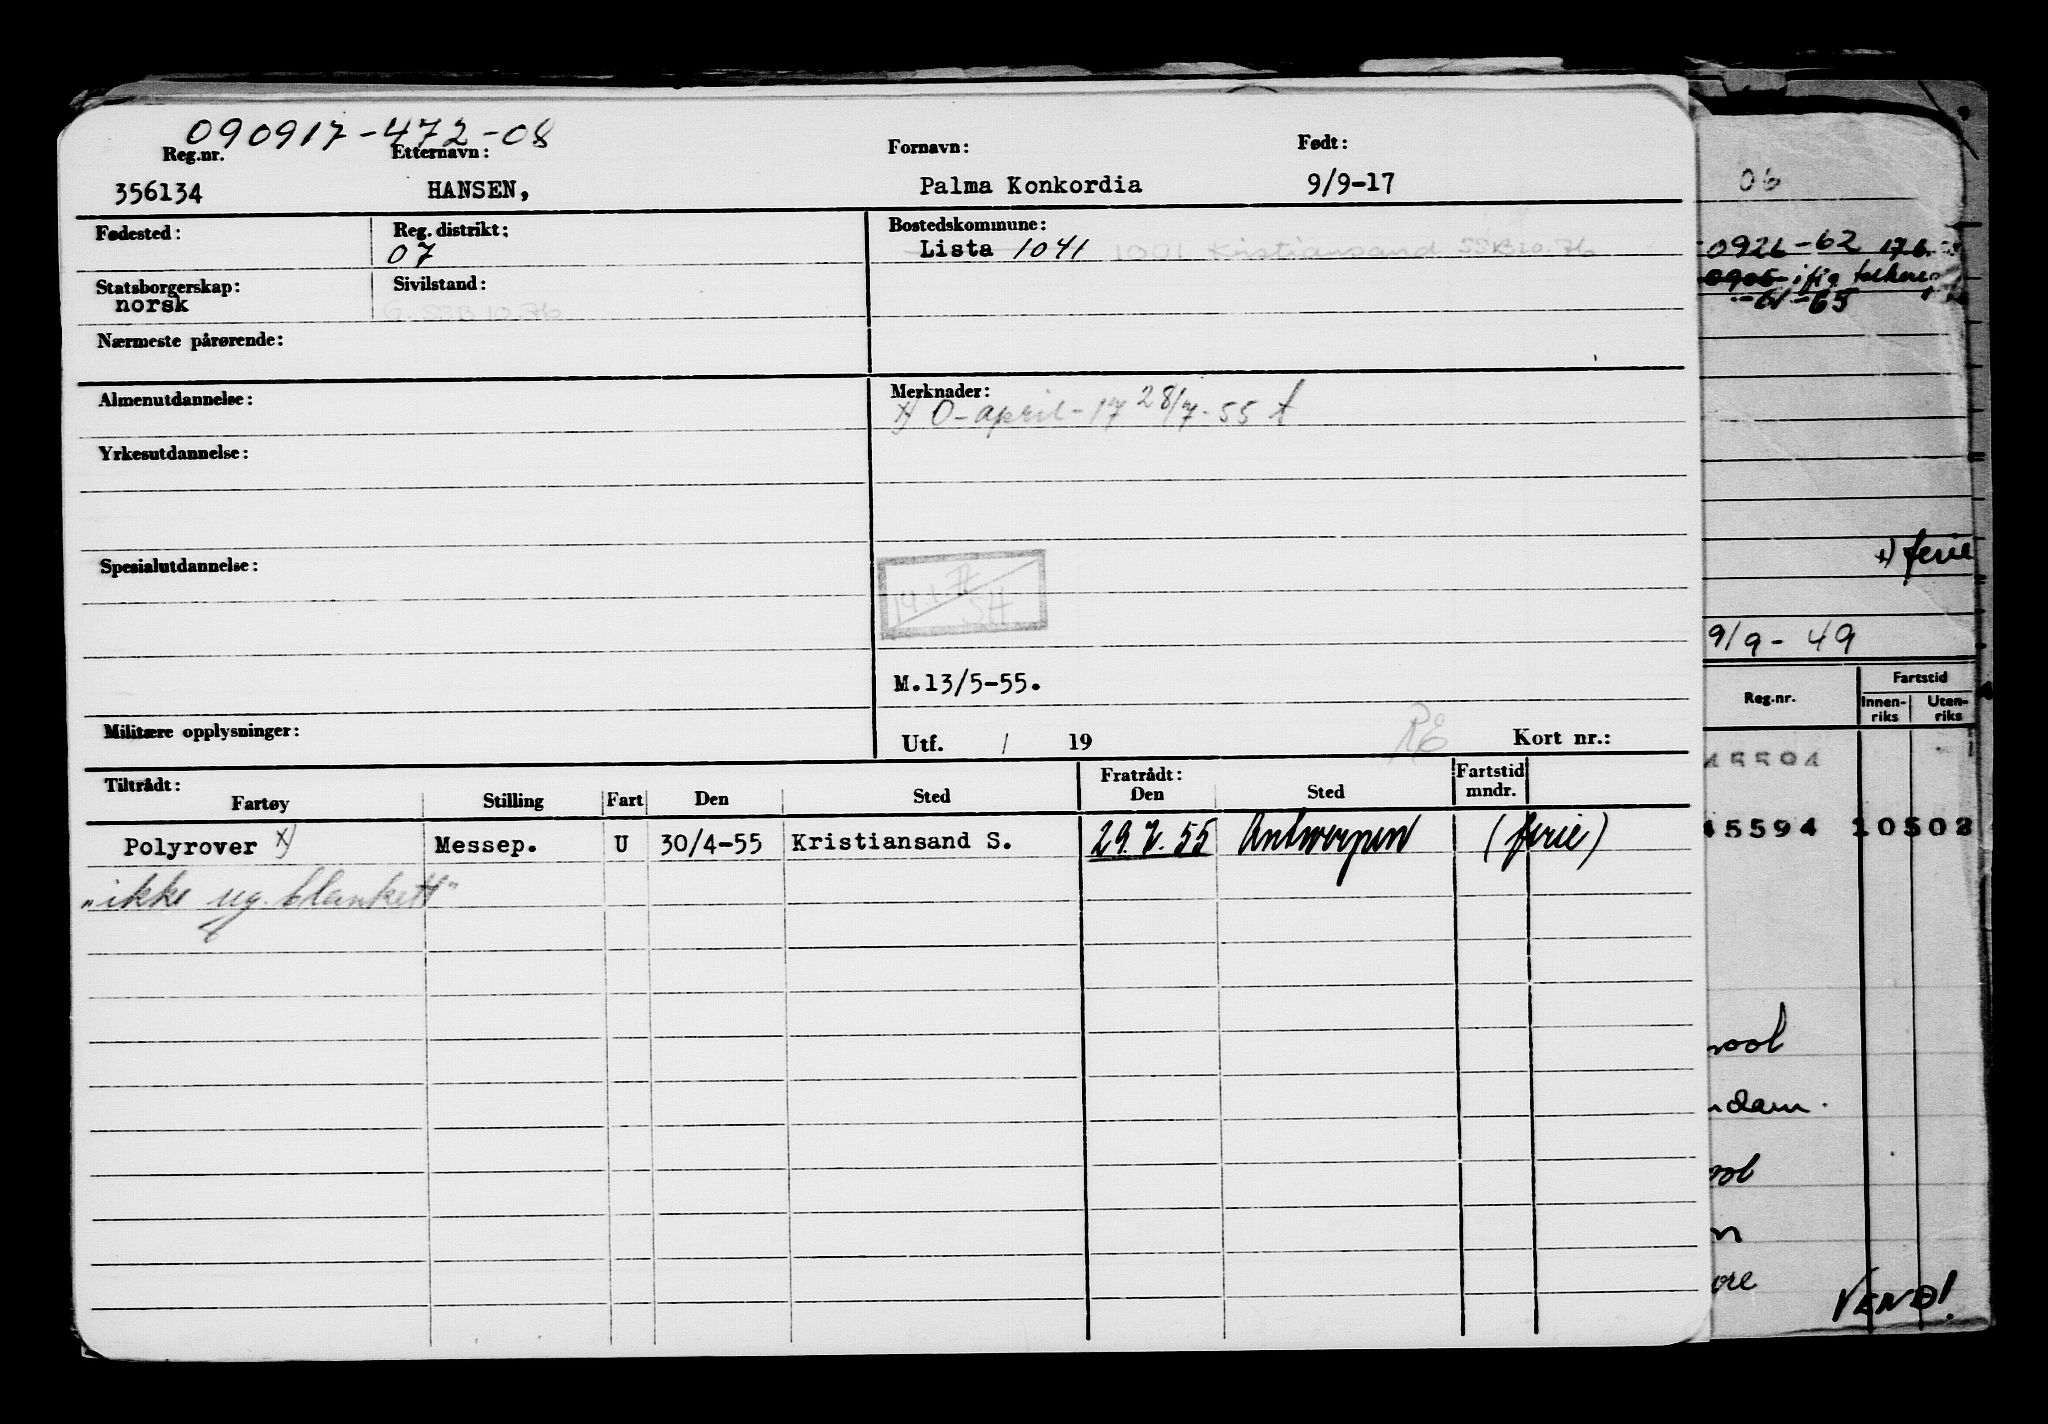 090917-472-08
Reg.nr. Etternavn: Fornavn: Født:
356134 HANSEN, Palma Konkordia 9/9-17
Fødested: Reg. distrikt: 07 Bostedskommune:
Lista 1041 1001 Kristiansand SSB 10.76
Statsborgerskap: norsk Sivilstand: G. SSB 10.76
Nærmeste pårørende:
Almenutdannelse: Merknader:
x) O-april-17 28/7-55
Yrkesutdannelse:
Spesialutdannelse:
SH
M.13/5-55.
Militære opplysninger: Utf. / 19 RE Kort nr.:
Tiltrådt: Fratrådt: Fartstid mndr.
Fartøy Stilling Fart Den Sted Den Sted
Polyrover x) Messep. U 30/4-55 Kristiansand S. 29.7.55 Antwerpen (ferie)
"ikke ug. blankett"
06
0926-62 17.6.
0905 ifig
-65
x) ferie
9/9-49
Reg.nr. Fartstid
Innen-riks Uten-riks
15594
45594 10502
ool
ndam.
ool
n
ore
VEND!